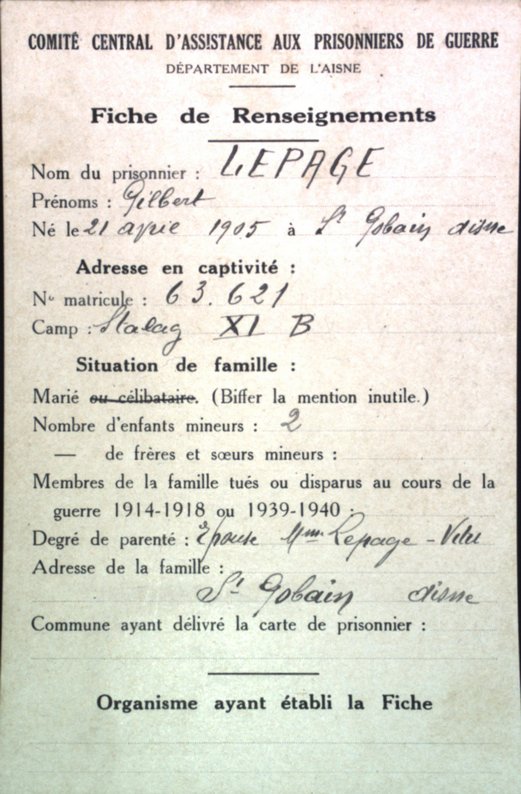 COMITÉ CENTRAL D'ASSISTANCE AUX PRISONNIERS DE GUERRE
DÉPARTEMENT DE L'AISNE
Fiche de Renseignements
Nom du prisonnier : LEPAGE
Prénoms : Gilbert
Né le 21 avril 1905 à St Gobain Aisne
Adresse en captivité :
No matricule : 63.621
Camp : Stalag XI B
Situation de famille :
Marié ou célibataire. (Biffer la mention inutile.)
Nombre d'enfants mineurs : 2
— de frères et sœurs mineurs :
Membres de la famille tués ou disparus au cours de la
guerre 1914-1918 ou 1939-1940 :
Degré de parenté : Epouse Mme Lepage -
Adresse de la famille :
St Gobain Aisne
Commune ayant délivré la carte de prisonnier :
Organisme ayant établi la Fiche